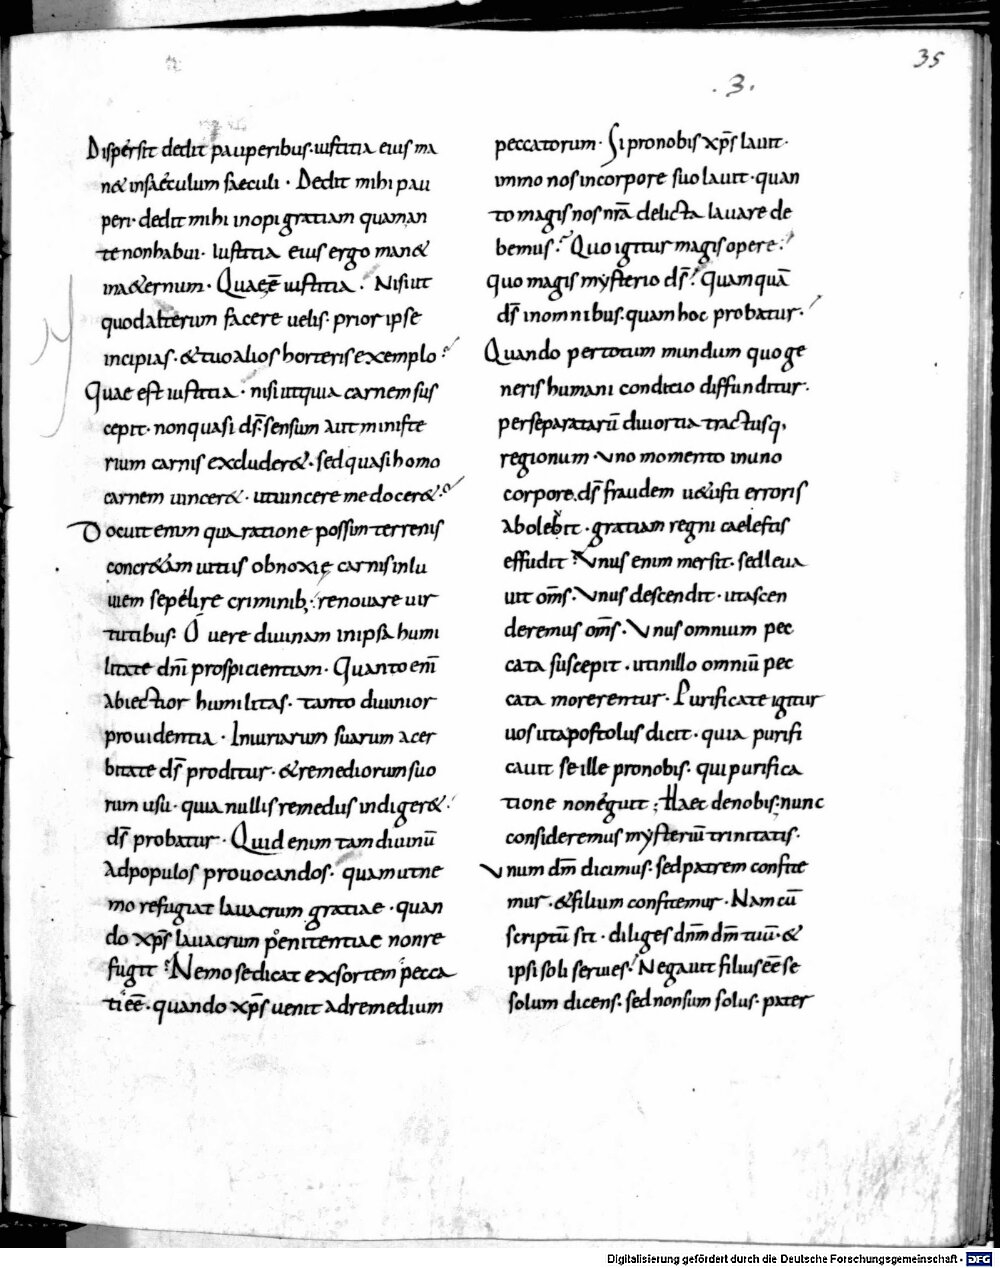 35
.3.
Dispersit dedit pauperibus. iustitia eius ma
n& insaeculum saeculi. Dedit mihi pau
peri. dedit mihi inopi gratiam quam an
te non habui. Iustitia eius ergo man&
in a&ernum. Quae ē iustitia? Nisi ut
quod alterum facere uelis. prior ipse
incipias. & tuo alios horteris exemplo?
Quae est iustitia. nisi ut quia carnem sus
cepit. non quasi ds̄ sensum aut ministe
rium carnis excluder&. sed quasi homo
carnem uincer&. ut uincere me docer&?
Docuit enim qua ratione possim terrenis
concr&am uitiis obnoxię carnis inlu
uiem sepelire criminib; renouare uir
tutibus. O uere diuinam in ipsa humi
litate dn̄i prospicientiam. Quanto eni̅
abiectior humilitas. tanto diuinior
prouidentia. Iniuriarum suarum acer
bitate ds̄ proditur. & remediorum suo
rum usu. quia nullis remediis indiger&.
ds̄ probatur. Quid enim tam diuinū
ad populos prouocandos. quam ut ne
mo refugiat lauacrum gratiae. quan
do xp̄s lauacrum penitentiae non re
fugit? Nemo se dicat exsortem pecca
ti eē. quando xp̄s uenit ad remedium
peccatorum. Si pro nobis xp̄s lauit.
immo nos in corpore suo lauit. quan
to magis nos nrā delicta lauare de
bemus? Quo igitur magis opere?
quo magis mysterio ds̄? quam quā
ds̄ in omnibus. quam hoc probatur.
Quando per totum mundum quo ge
neris humani conditio diffunditur.
per separatarū diuortia tractusq,
regionum uno momento in uno
corpore. ds̄ fraudem uetusti erroris
aboleuit. gratiam regni caelestis
effudit? Unus enim mersit. sed leua
uit om̄s. Unus descendit. ut ascen
deremus om̄s. Unus omnium pec
cata suscepit. ut in illo omniū pec
cata morerentur. Purificate igitur
uos ut apostolus dicit. quia purifi
cauit se ille pro nobis. qui purifica
tione non eguit; Haec de nobis. nunc
consideremus mysteriū trinitatis.
Unum dm̄ dicimus. sed patrem confite
mur. & filium confitemur. Nam cū
scriptū sit. diliges dn̄m dm̄ tuū. &
ipsi soli seruies. Negauit filius eē se
solum dicens. sed non sum solus. pater
Digitalisierung gefördert durch die Deutsche Forschungsgemeinschaft - DFG